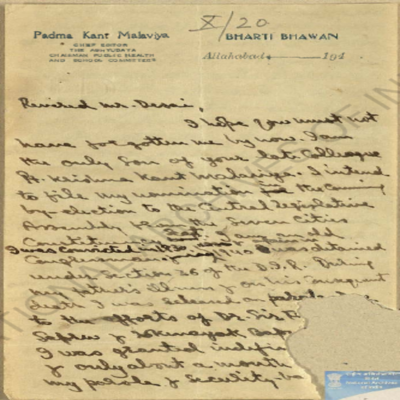 X/20
Padma Kant Malaviya
CHIEF EDITOR
THE ABHYUDAYA
CHAIRMAN PUBLIC HEALTH
AND SCHOOL COMMITTEES
BHARTI BHAWAN
Allahabad 194
Revered Mr. Desai,
I hope you must not
have forgotten me by now. I am
the only Son of your late Colleague
Pt. Krishna Kant Malaviya. I intend
to file my nomination the Coming
by-election to the Central Legislative
Assembly from the Seven Cities
Constituency. I am an old
I was Convicted in 1930
Congressman 1940 was detained
under Section 26 of the D.I.R. During
my father's illness & on his subsequent
death I was released on parole
to the efforts of Dr. Sir
Sapru & Lokanayak
I was granted
& only about a month
my parole & Security